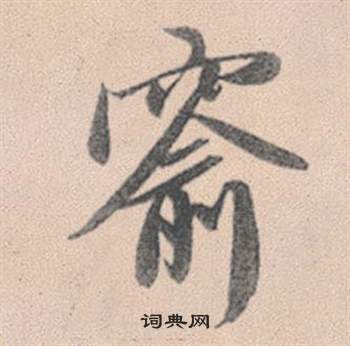 窬
词典网